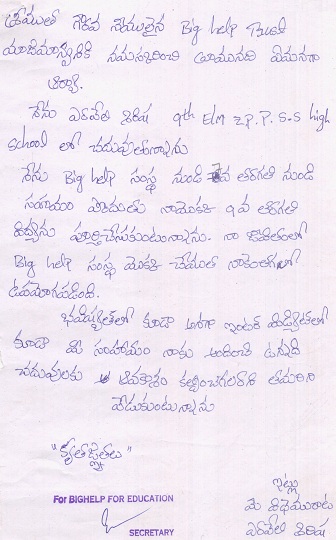 శ్రీయుత గౌరవ నీయులైన Big help Trust
యాజమాన్యానికి నమస్కరించి వ్రాయునది ఏమనగా
ఆర్యా.
నేను ఎరవేలి శిరీష 9th E/m Z.P.P.S.S high
school లో చదువుతున్నాను
నేను Big help సంస్థ నుండి వ తరగతి నుండి
సహాయం నాయొక్క 9వ తరగతి
విద్యను పూర్తిచేసుకుంటున్నాను. నా జీవితంలో
Big help సంస్థ యొక్క చేయూత నాకెంతగానో
ఉపయోగపడింది.
భవిష్యత్తులో కూడా అనగా ఇంటర్
కూడా మీ సహాయం నాకు అందించి ఉన్నత
చదువులకు అవకాశం కల్పించగలరని తమరిని
వేడుకుంటున్నాను
"కృతజ్ఞతలు"
ఇట్లు
For BIGHELP FOR EDUCATION
మీ
SECRETARY
ఎరవేలి శిరీష